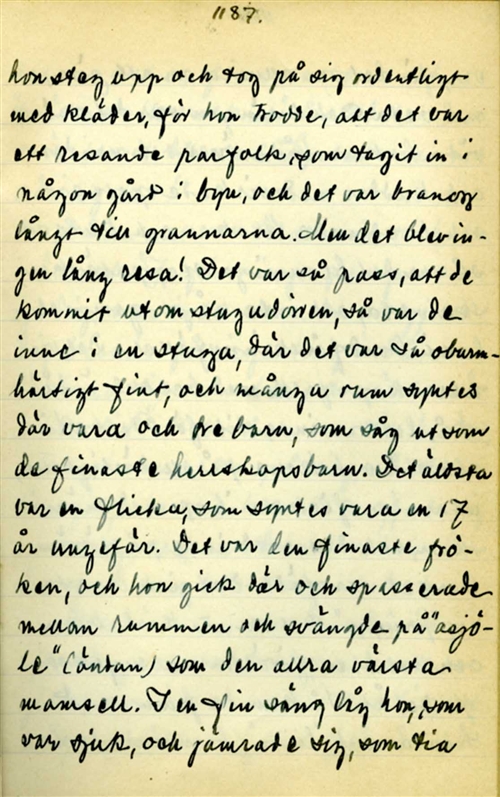 1187.
hon steg upp och tog på sig ordentligt
med kläder, för hon trodde, att det var
ett resande parfolk, som tagit in i
någon gård i byn, och det var bra nog
långt till grannarna. Men det blev in-
gen lång resa! Det var så pass, att de
kommit utom stugudörren, så var de
inne i en stuga, där det var så obarm-
härtigt fint, och många rum syntes
där vara och tre barn, som såg ut som
de finaste herrskapsbarn. Det äldsta
var en flicka, som syntes vara en 17
år ungefär. Det var den finaste frö-
ken, och hon gick där och spasserade
mellan rummen och svängde på "asjö-
le" (ändan) som den allra värsta
mamsell. I en fin säng låg hon, som
var sjuk, och jämrade sig, som tia